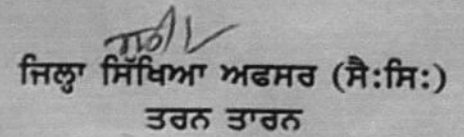 ਜਿਲ੍ਹਾ ਸਿੱਖਿਆ ਅਫਸਰ (ਸੈ:ਸਿ:)
ਤਰਨ ਤਾਰਨ